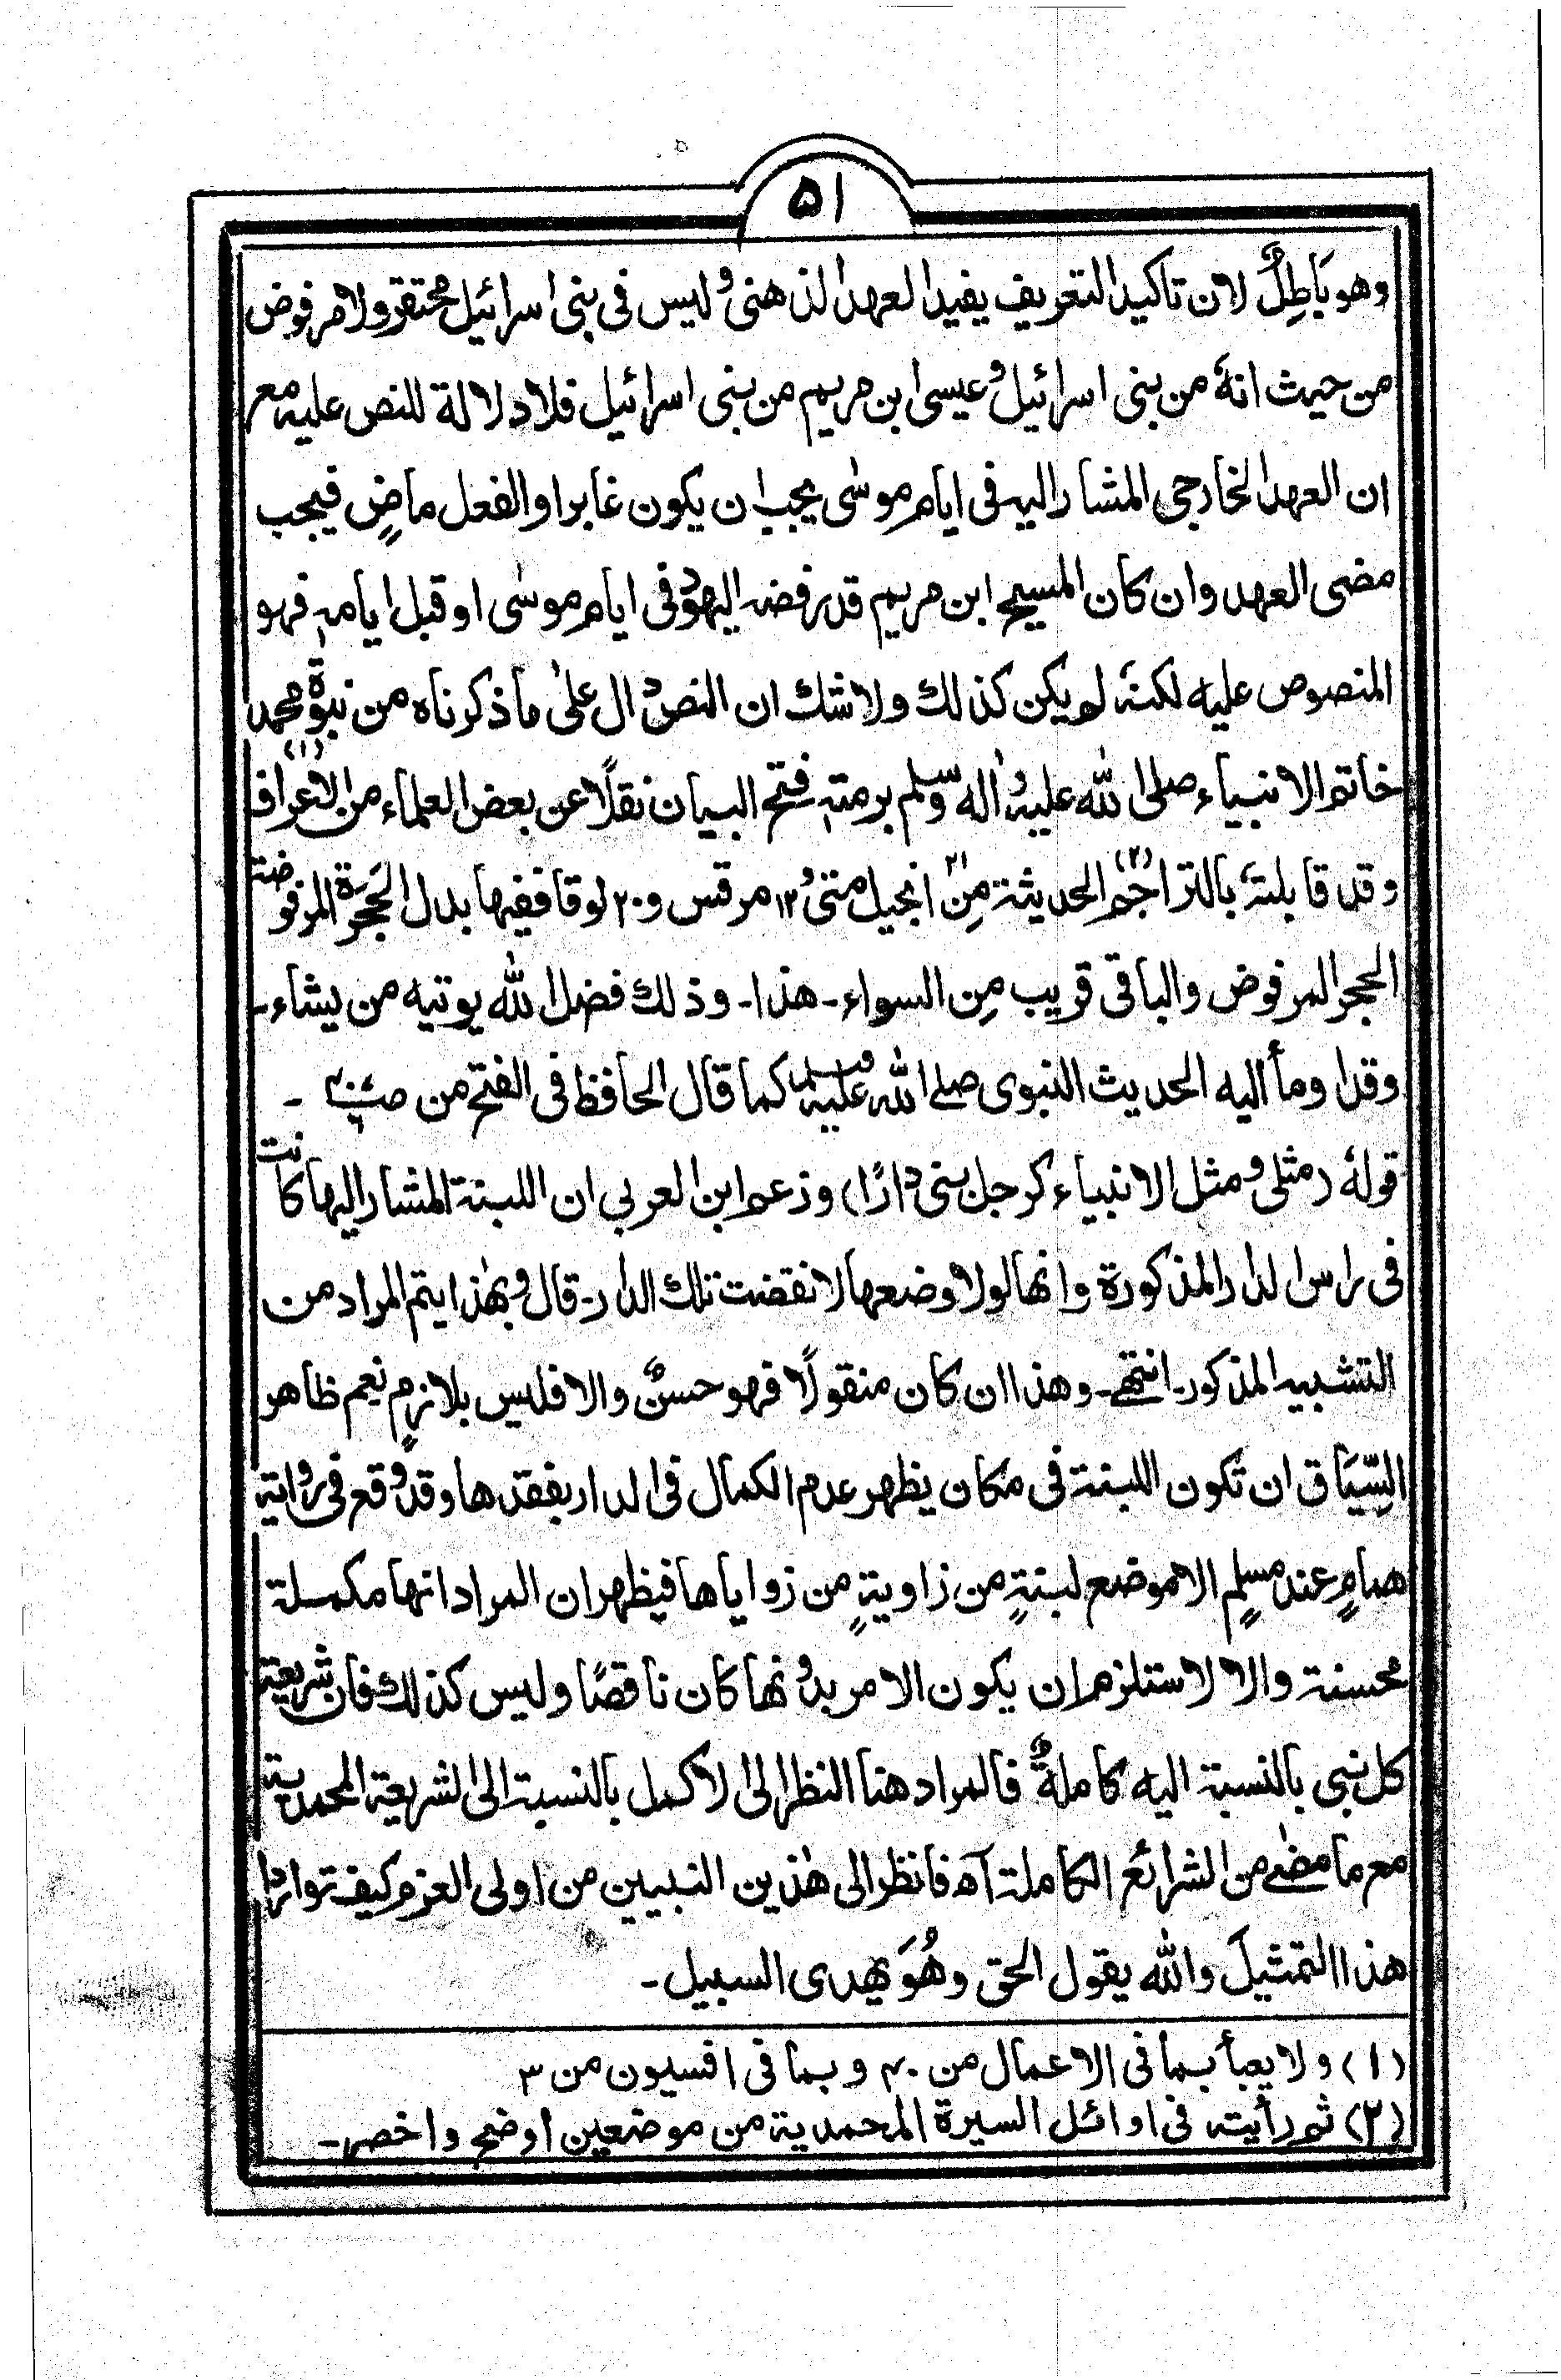 ۵۱
وهو بَاطِلٌ لان تاكيد التعريف يفيد العهد الذهنى وليس فى بنى اسرائيل محتقر ولا مرفوض
من حيث انهٗ من بنى اسرائيل وعيسى ابن مريم من بنى اسرائيل فلا دلالة للنص عليه مع
ان العهد الخارجى المشار اليه فى ايام موسٰى يجب ان يكون غابرا والفعل ماضٍ فيجب
مضى العهد وان كان المسيح ابن مريم قد رفضه اليهود فى ايام موسٰى او قبل ايامه فهو
المنصوص عليه لكنهٗ لم يكن كذلك ولا شك ان النص دال علٰى ما ذكرناه من نبوة محمد
خاتم الانبياء صلى الله عليه واٰله وسلم برمته فتح البيان نقلًا عن بعض العلماء من الاعراف (۱)
وقد قابلتهٗ بالتراجم (۲) الحديثة مِن ۲۱ انجيل متى و ۱۲ مرقس و ۲۰ لوقا ففيها بدل الحَجَرَة المرفوضة
الحجر المرفوض والباقى قريب مِن السواء۔ هذا۔ وذلك فضل الله يوتيه من يشاء۔
وقد اومأ اليه الحديث النبوى صلے الله عليه وسلم كما قال الحافظ فى الفتح من ۔
قولهٗ (مثلى ومثل الانبياء كرجل بنى دارًا) وزعم ابن العربي ان اللبنة المشار اليها كانت
فى راس الدار المذكورة وانها لولا وضعها لانقضت تلك الدار۔ قال وبهٰذا يتم المراد من
التشبيه المذكور۔ انتهٰے۔ وهذا ان كان منقولًا فهو حسنٌ والا فليس بلازمٍ نعم ظاهر
السِّيَاق ان تكون اللبنة فى مكان يظهر عدم الكمال فى الدار بفقدها وقد وقع فى رواية
همامٍ عند مسلمٍ الا موضع لبنةٍ من زاويةٍ من زواياها فيظهر ان المراد انها مكملة
محسنة والا لاستلزم ان يكون الامر بدونها كان ناقصًا وليس كذلك فان شريعة
كل نبى بالنسبة اليه كاملةٌ فالمراد هنا النظر الى الاكمل بالنسبة الى الشريعة المحمدية
مع ما مضٰے من الشرائع الكاملة آه فانظر الى هٰذين النبيين من اولى العزم كيف تواردا
هذا التمثيلَ والله يقول الحق وهُوَ يهدى السبيل۔
(۱) ولا يعبأ بما فى الاعمال من ۴۰ وبما فى افسيون من ۳
(۲) ثم رأيته فى اوائل السيرة المحمدية من موضعين اوضح واخصر۔